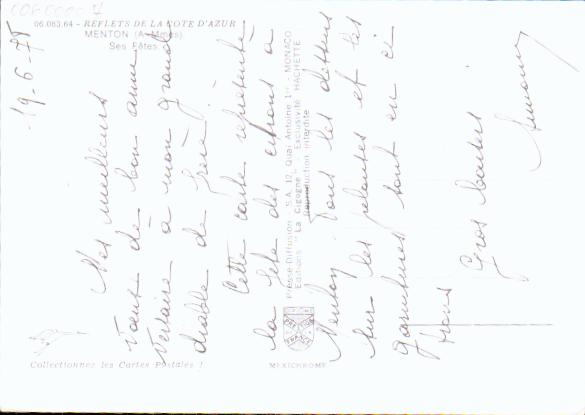 06.083.64 - REFLETS DE LA COTE D'AZUR
MENTON (A.-Mmes)
Ses Fêtes
19-6-75
Mes meilleurs
vœux de bon anni
versaire à mon grand
diable de frère!
Cette carte représente
la fête des citrons à
Menton. Tous les dessins
sur les pelouses et les
garnitures sont en ci
trons
Gros baisers
Presse-Diffusion - S.A. 12, Quai Antoine 1er - MONACO
Editions "La Cigogne" - Exclusivité HACHETTE
Reproduction interdite
Collectionnez les Cartes Postales !
MEXICHROME